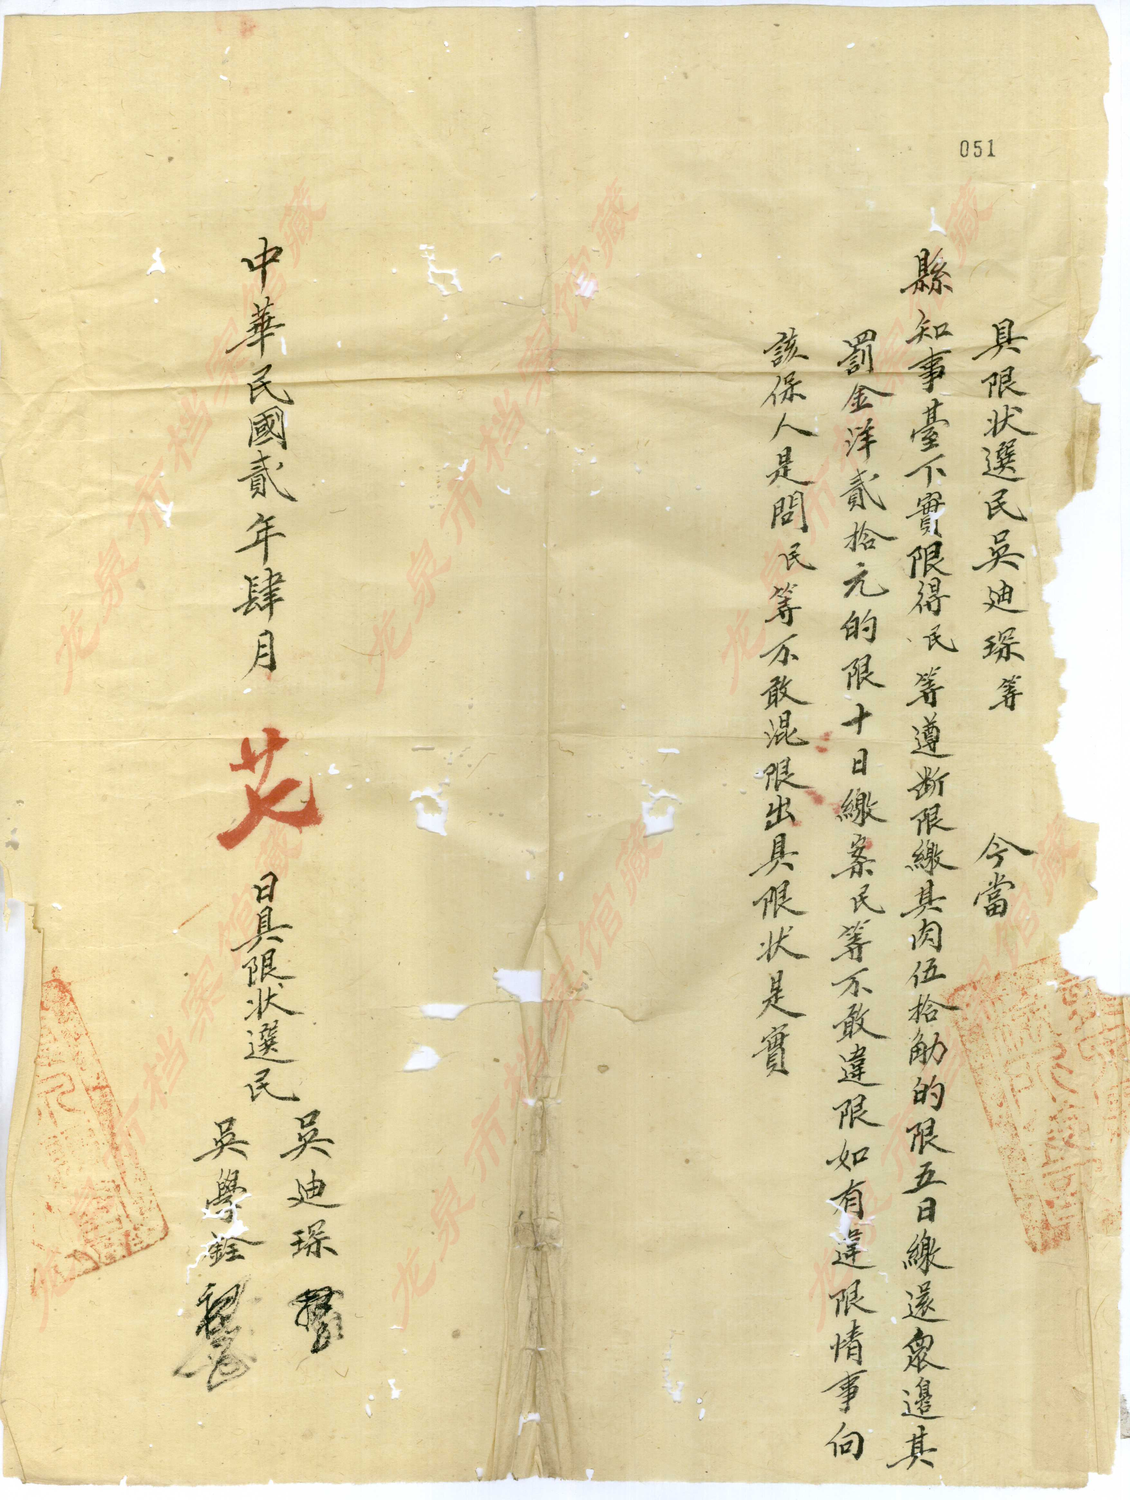 051
具限状選民吳迪琛等 今當
縣知事臺下實限得民等遵断限繳其肉伍拾觔的限五日繳還衆邊其
罰金洋貳拾元的限十日繳案民等不敢違限如有違限情事向
該保人是問民等不敢混限出具限状是實
中華民國貳年肆月 廿七 日具限状選民
吳迪琛
吳學銓
龙泉市档案馆藏